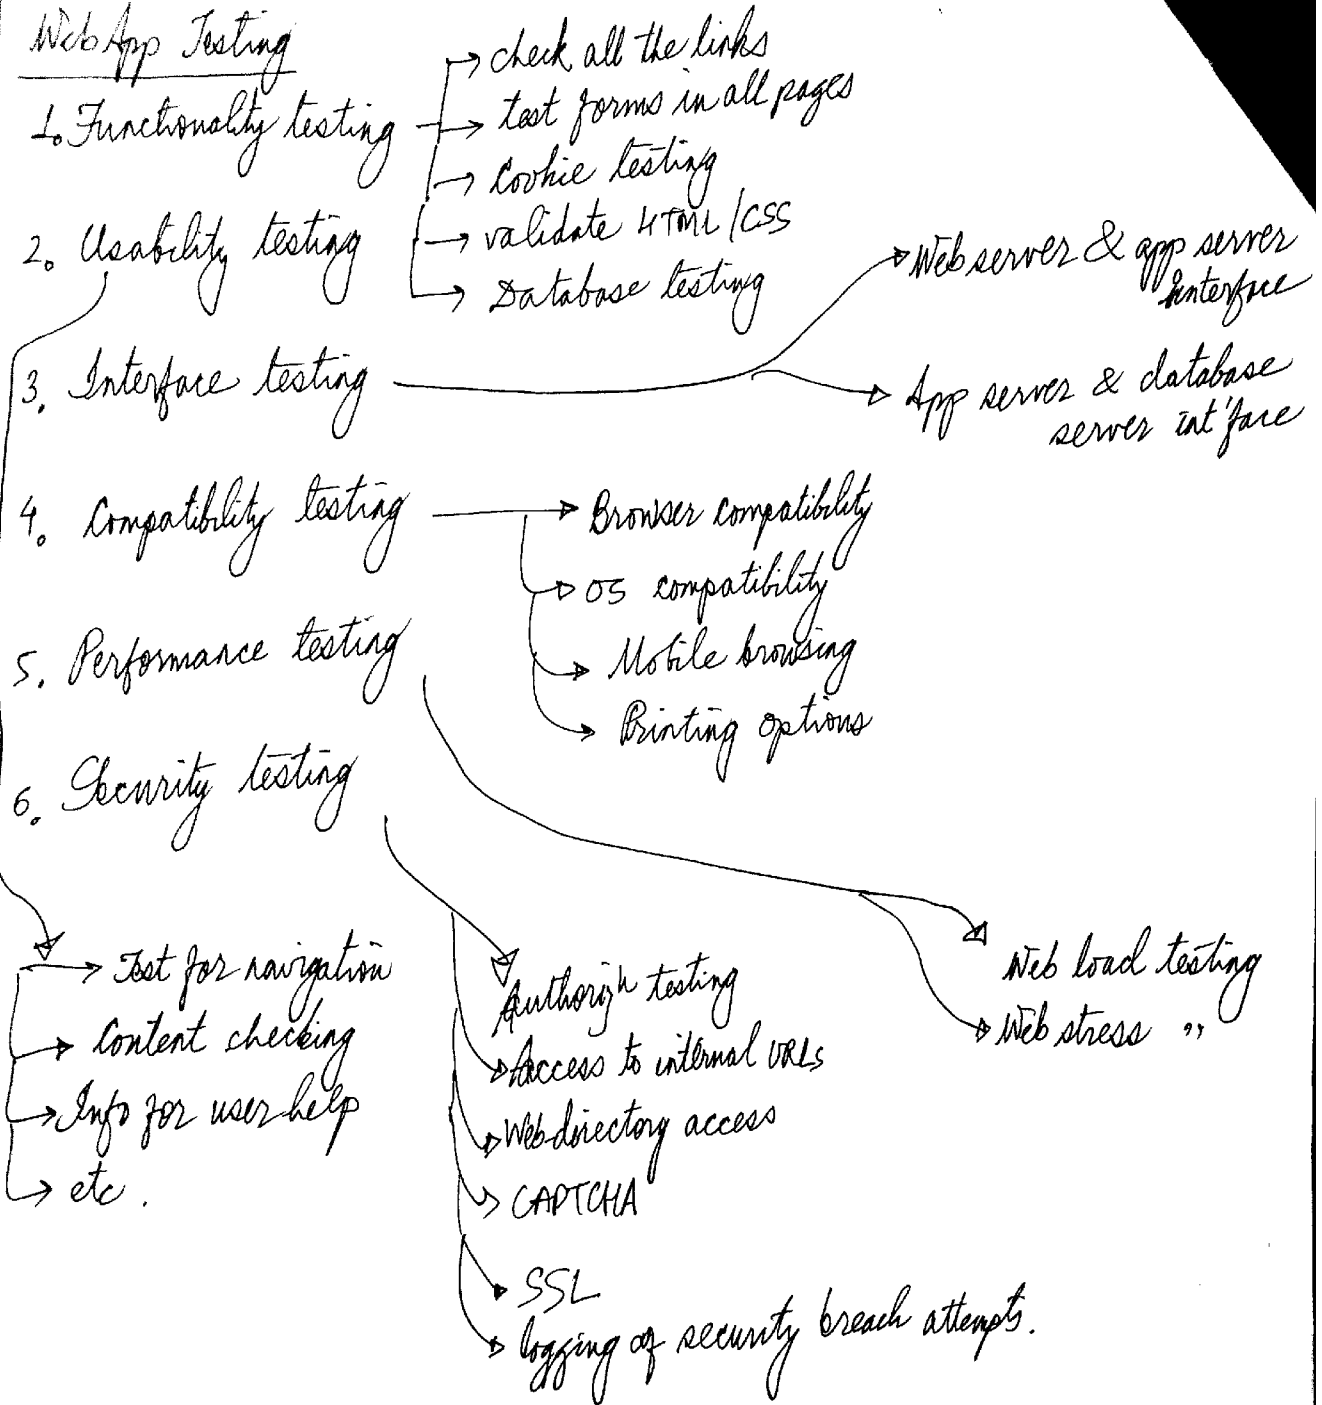 Web App Testing
1. Functionality testing
→ check all the links
→ test forms in all pages
→ Cookie testing
→ validate HTML/CSS
→ Database testing
2. Usability testing
3. Interface testing
→ Web server & app server
interface
→ App server & database
server int'face
4. Compatibility testing
→ Browser compatibility
→ OS compatibility
→ Mobile browsing
→ Printing options
5. Performance testing
6. Security testing
→ Test for navigation
→ Content checking
→ Info for user help
→ etc.
testing
→ Access to internal URLs
→ Web directory access
→ CAPTCHA
→ SSL
→ logging of security breach attempts.
Web load testing
→ Web stress ,,